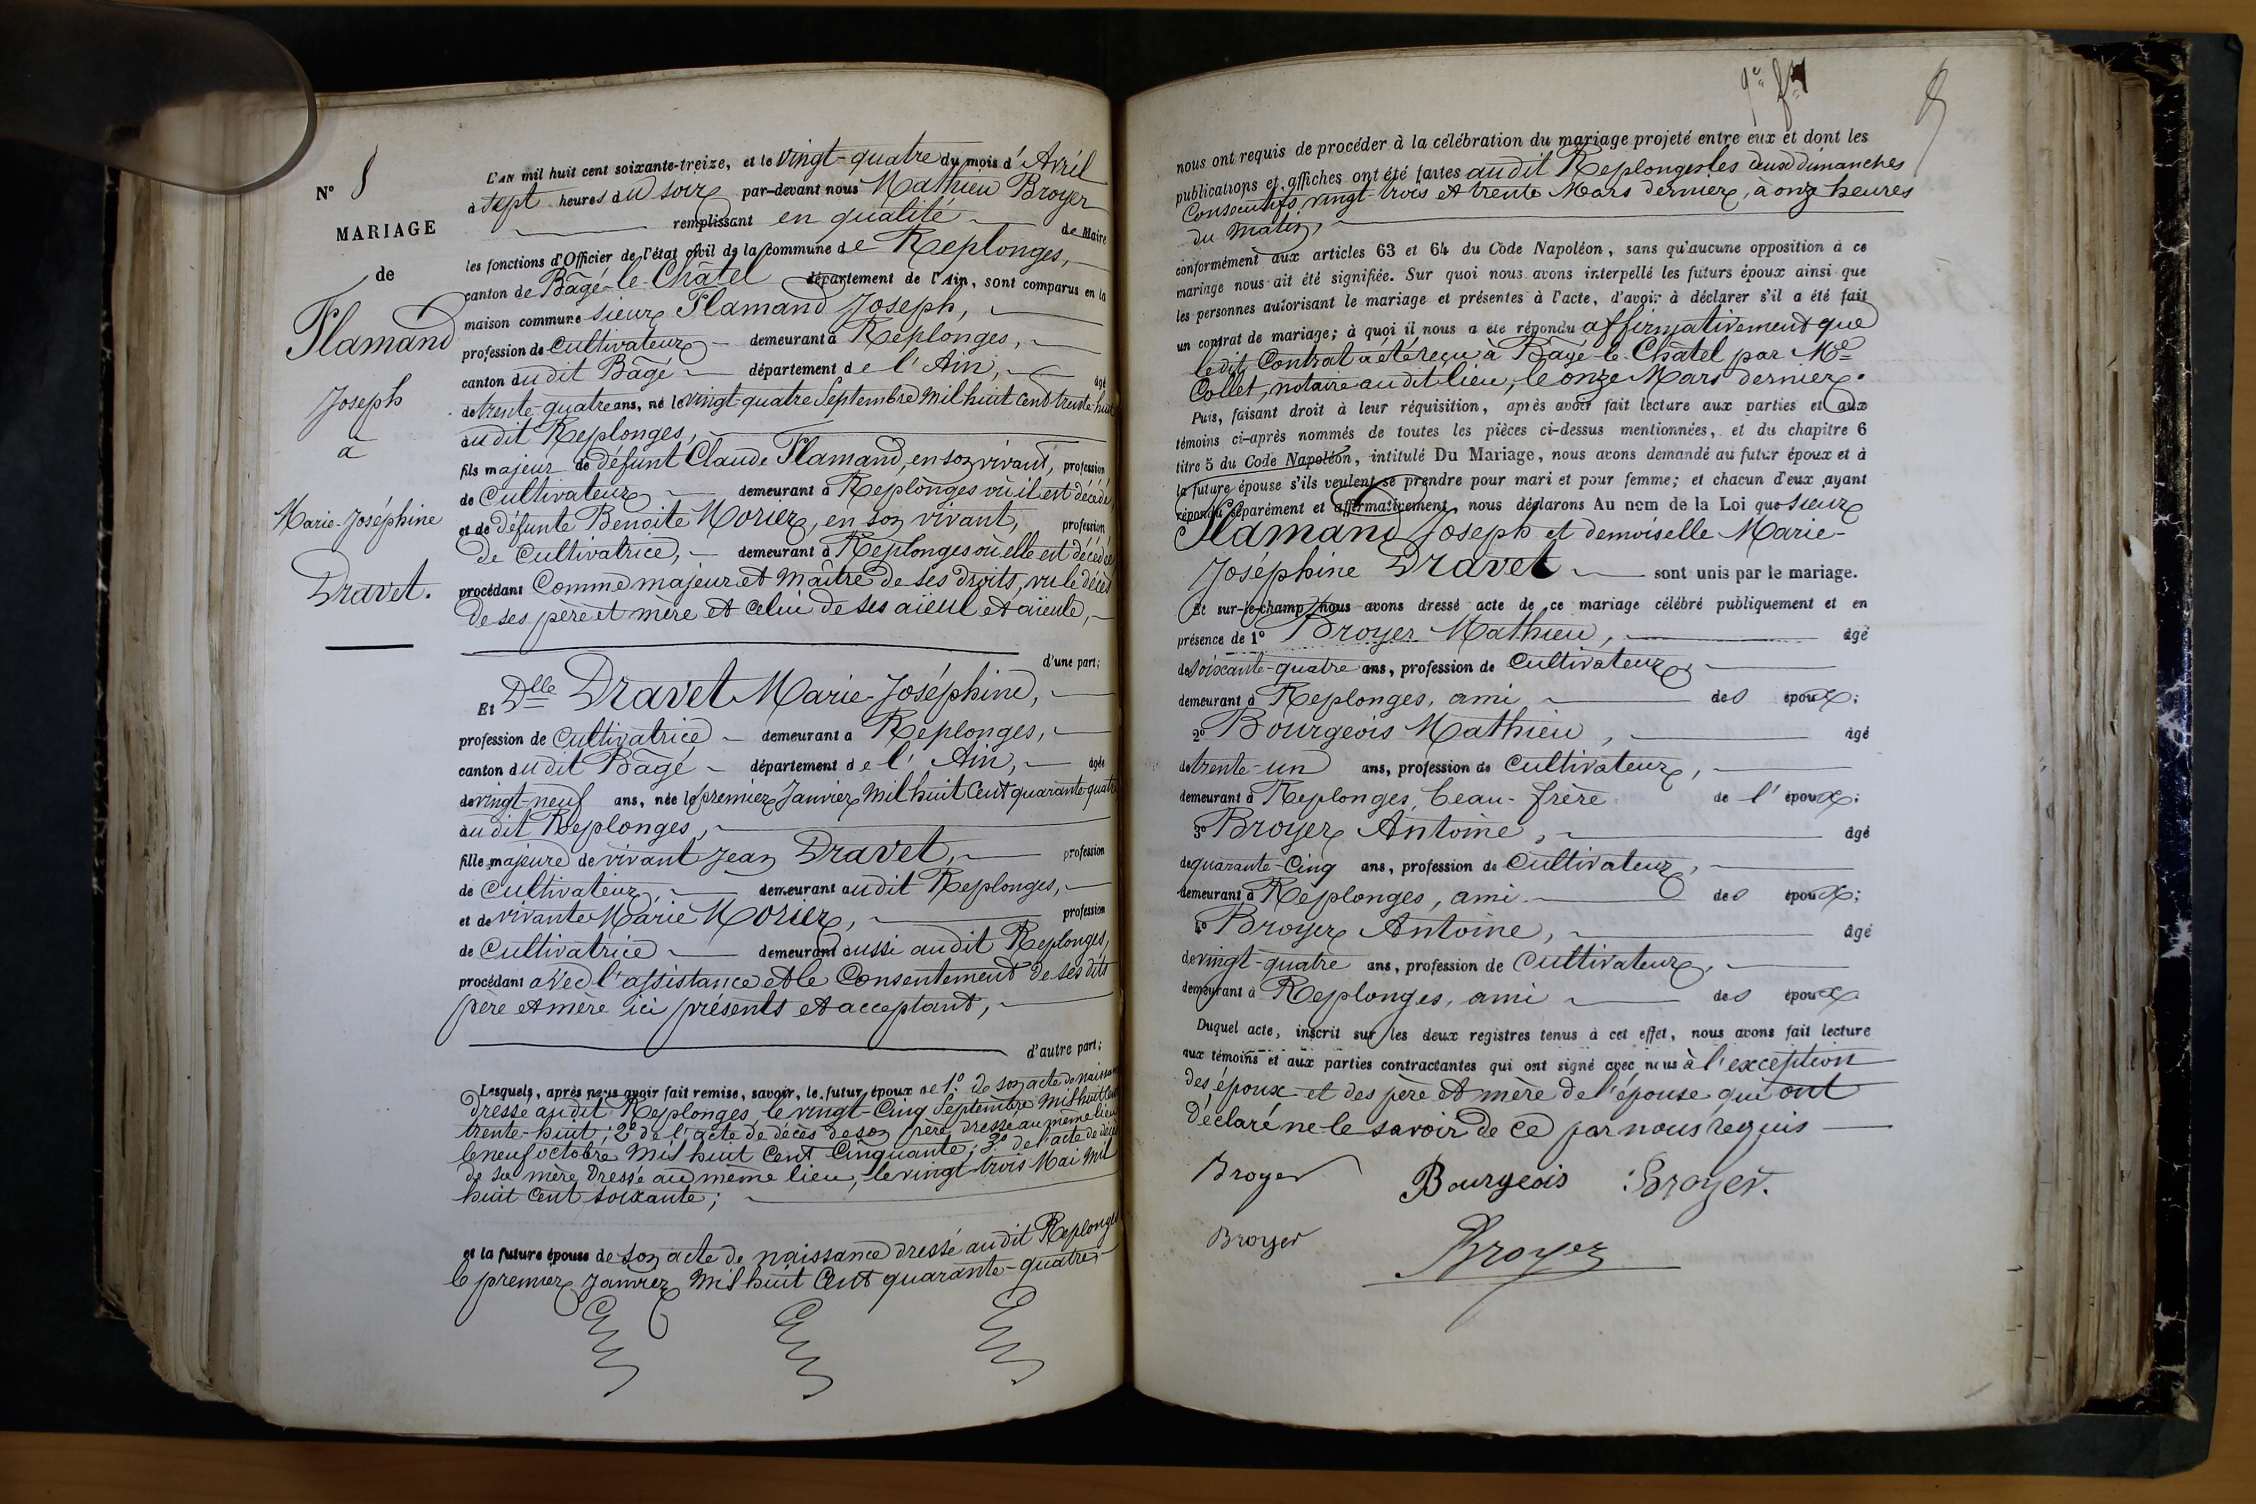 N° 8
MARIAGE
de
Flamand
Joseph
à
Marie-Joséphine
Dravet.
L'AN mil huit cent soixante-treize, et le vingt-quatre du mois d'Avril
à sept heures du soir par-devant nous Mathieu Broyer
remplissant en qualité de Maire
les fonctions d'Officier de l'état civil de la commune de Replonges,
canton de Bâgé-le-Châtel département de l'Ain, sont comparus en la
maison commune sieur Flamand Joseph,
profession de Cultivateur demeurant à Replonges,
canton dudit Bâgé département de l'Ain, âgé
de trente-quatre ans, né le vingt-quatre Septembre mil huit cent trente-huit
audit Replonges,
fils majeur de défunt Claude Flamand, en son vivant, profession
de Cultivateur demeurant à Replonges où il est décédé,
et de défunte Benoite Morier, en son vivant, profession
de Cultivatrice, demeurant à Replonges où elle est décédée
procédant Comme majeur et maître de ses droits, vu le décès
de ses père et mère et celui de ses aïeul et aïeule,
d'une part;
Et Dlle Dravet Marie-Joséphine,
profession de Cultivatrice demeurant à Replonges,
canton dudit Bâgé département de l'Ain, âgée
de vingt-neuf ans, née le premier Janvier mil huit Cent quarante-quatre
audit Replonges,
fille majeure de vivant Jean Dravet, profession
de Cultivateur, demeurant audit Replonges,
et de vivante Marie Morier, profession
de Cultivatrice demeurant aussi audit Replonges,
procédant avec l'assistance et le Consentement de ses dits
père et mère ici présents et acceptant,
d'autre part;
Lesquels, après nous avoir fait remise, savoir, le futur époux de 1° de son acte de naissance
dressé audit Replonges le vingt-cinq Septembre mil huit cent
trente-huit; 2° de l'acte de décès de son père dressé au même lieu
le neuf octobre mil huit Cent Cinquante; 3° de l'acte de décès
de sa mère dressé au même lieu, le vingt-trois Mai mil
huit Cent soixante;
et la future épouse de son acte de naissance dressé audit Replonges
le premier Janvier mil huit Cent quarante-quatre
8
nous ont requis de procéder à la célébration du mariage projeté entre eux et dont les
publications et affiches ont été faites audit Replonges les deux dimanches
Consécutifs, vingt-trois et trente Mars dernier, à onze heures
du matin,
conformément aux articles 63 et 64 du Code Napoléon, sans qu'aucune opposition à ce
mariage nous ait été signifiée. Sur quoi nous avons interpellé les futurs époux ainsi que
les personnes autorisant le mariage et présentes à l'acte, d'avoir à déclarer s'il a été fait
un contrat de mariage; à quoi il nous a été répondu affirmativement que
ledit Contrat a été reçu à Bâgé-le-Châtel par Me
Collet, notaire audit lieu, le onze Mars dernier.
Puis, faisant droit à leur réquisition, après avoir fait lecture aux parties et aux
témoins ci-après nommés de toutes les pièces ci-dessus mentionnées, et du chapitre 6
titre 5 du Code Napoléon, intitulé Du Mariage, nous avons demandé au futur époux et à
la future épouse s'ils veulent se prendre pour mari et pour femme; et chacun d'eux ayant
répondu séparément et affirmativement, nous déclarons Au nom de la Loi que sieur
Flamand Joseph et demoiselle Marie-
Joséphine Dravet sont unis par le mariage.
Et sur-le-champ nous avons dressé acte de ce mariage célébré publiquement et en
présence de 1° Broyer Mathieu, âgé
de soixante-quatre ans, profession de Cultivateur,
demeurant à Replonges, ami des époux;
2° Bourgeois Mathieu, âgé
de trente-un ans, profession de Cultivateur,
demeurant à Replonges, beau-frère de l'époux;
3° Broyer Antoine, âgé
de quarante-Cinq ans, profession de Cultivateur,
demeurant à Replonges, ami des époux;
4° Broyer Antoine, âgé
de vingt-quatre ans, profession de Cultivateur,
demeurant à Replonges, ami des époux
Duquel acte, inscrit sur les deux registres tenus à cet effet, nous avons fait lecture
aux témoins et aux parties contractantes qui ont signé avec nous à l'exception
des époux et des père et mère de l'épouse qui ont
déclaré ne le savoir de ce par nous requis
Broyer Bourgeois Broyer.
Broyer Broyer